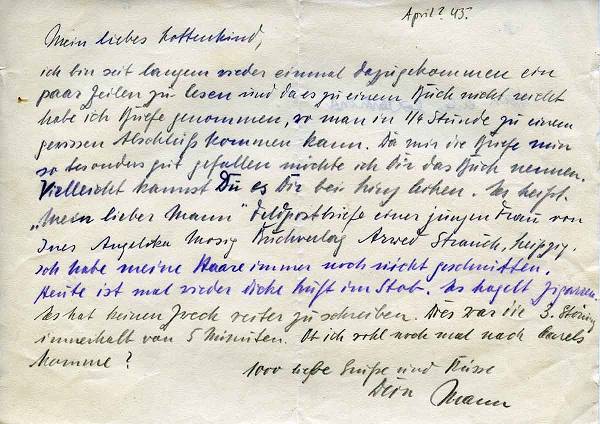 April? 45.
Mein liebes Kattenkind,
ich bin seit langem wieder einmal dazugekommen ein
paar Zeilen zu lesen und da es zu einem Buch nicht reicht
habe ich Briefe genommen, wo man in 1/4 Stunde zu einem
gewissen Abschluß kommen kann. Da mir die Briefe nun
so besonders gut gefallen möchte ich Dir das Buch nennen.
Vielleicht kannst Du es Dir bei leihen. Es heißt.
„Mein lieber Mann" Feldpostbriefe einer jungen Frau von
Ines Angelika Mosig Buchverlag Arwed Strauch, Leipzig.
Ich habe meine Haare immer noch nicht geschnitten.
Heute ist mal wieder dicke Luft im Stab. Es hagelt Zigarren.
Es hat keinen Zweck weiter zu schreiben. Dies war die 3. Störung
innerhalb von 5 Minuten. Ob ich wohl noch mal nach
komme?
1000 liebe Grüße und Küsse
Dein Mann